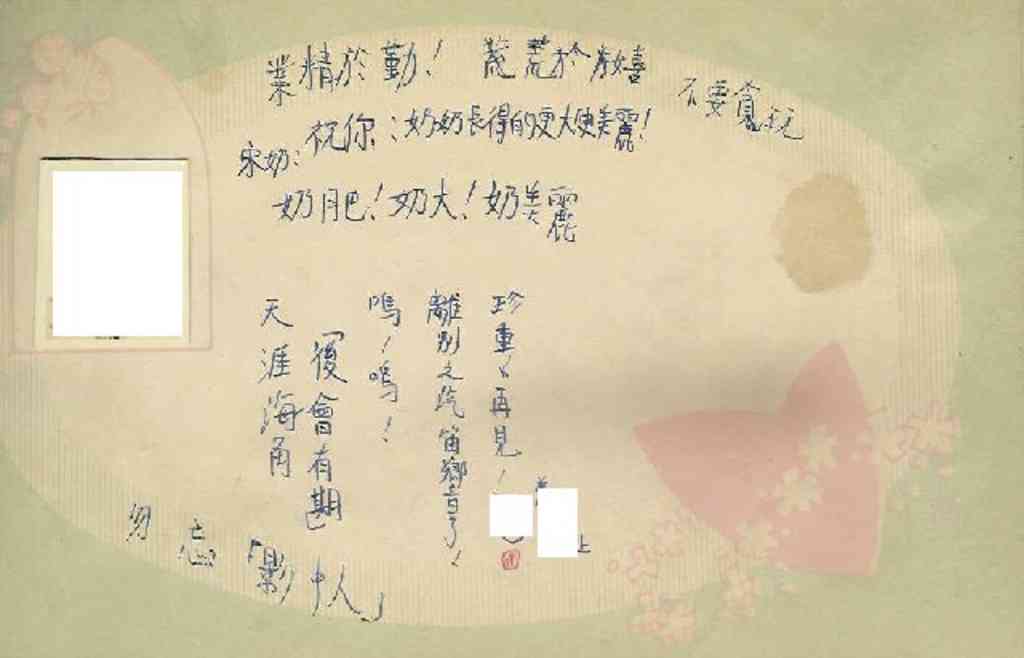 業精於勤！ 荒荒於嬉
不要貪玩
祝你：奶奶長得的更大更美麗！
宋奶：
奶肥！奶大！奶美麗
珍重、再見！
離別之汽笛響了！
嗚！嗚！
「後會有期」
天涯海角
勿忘「影中人」
上